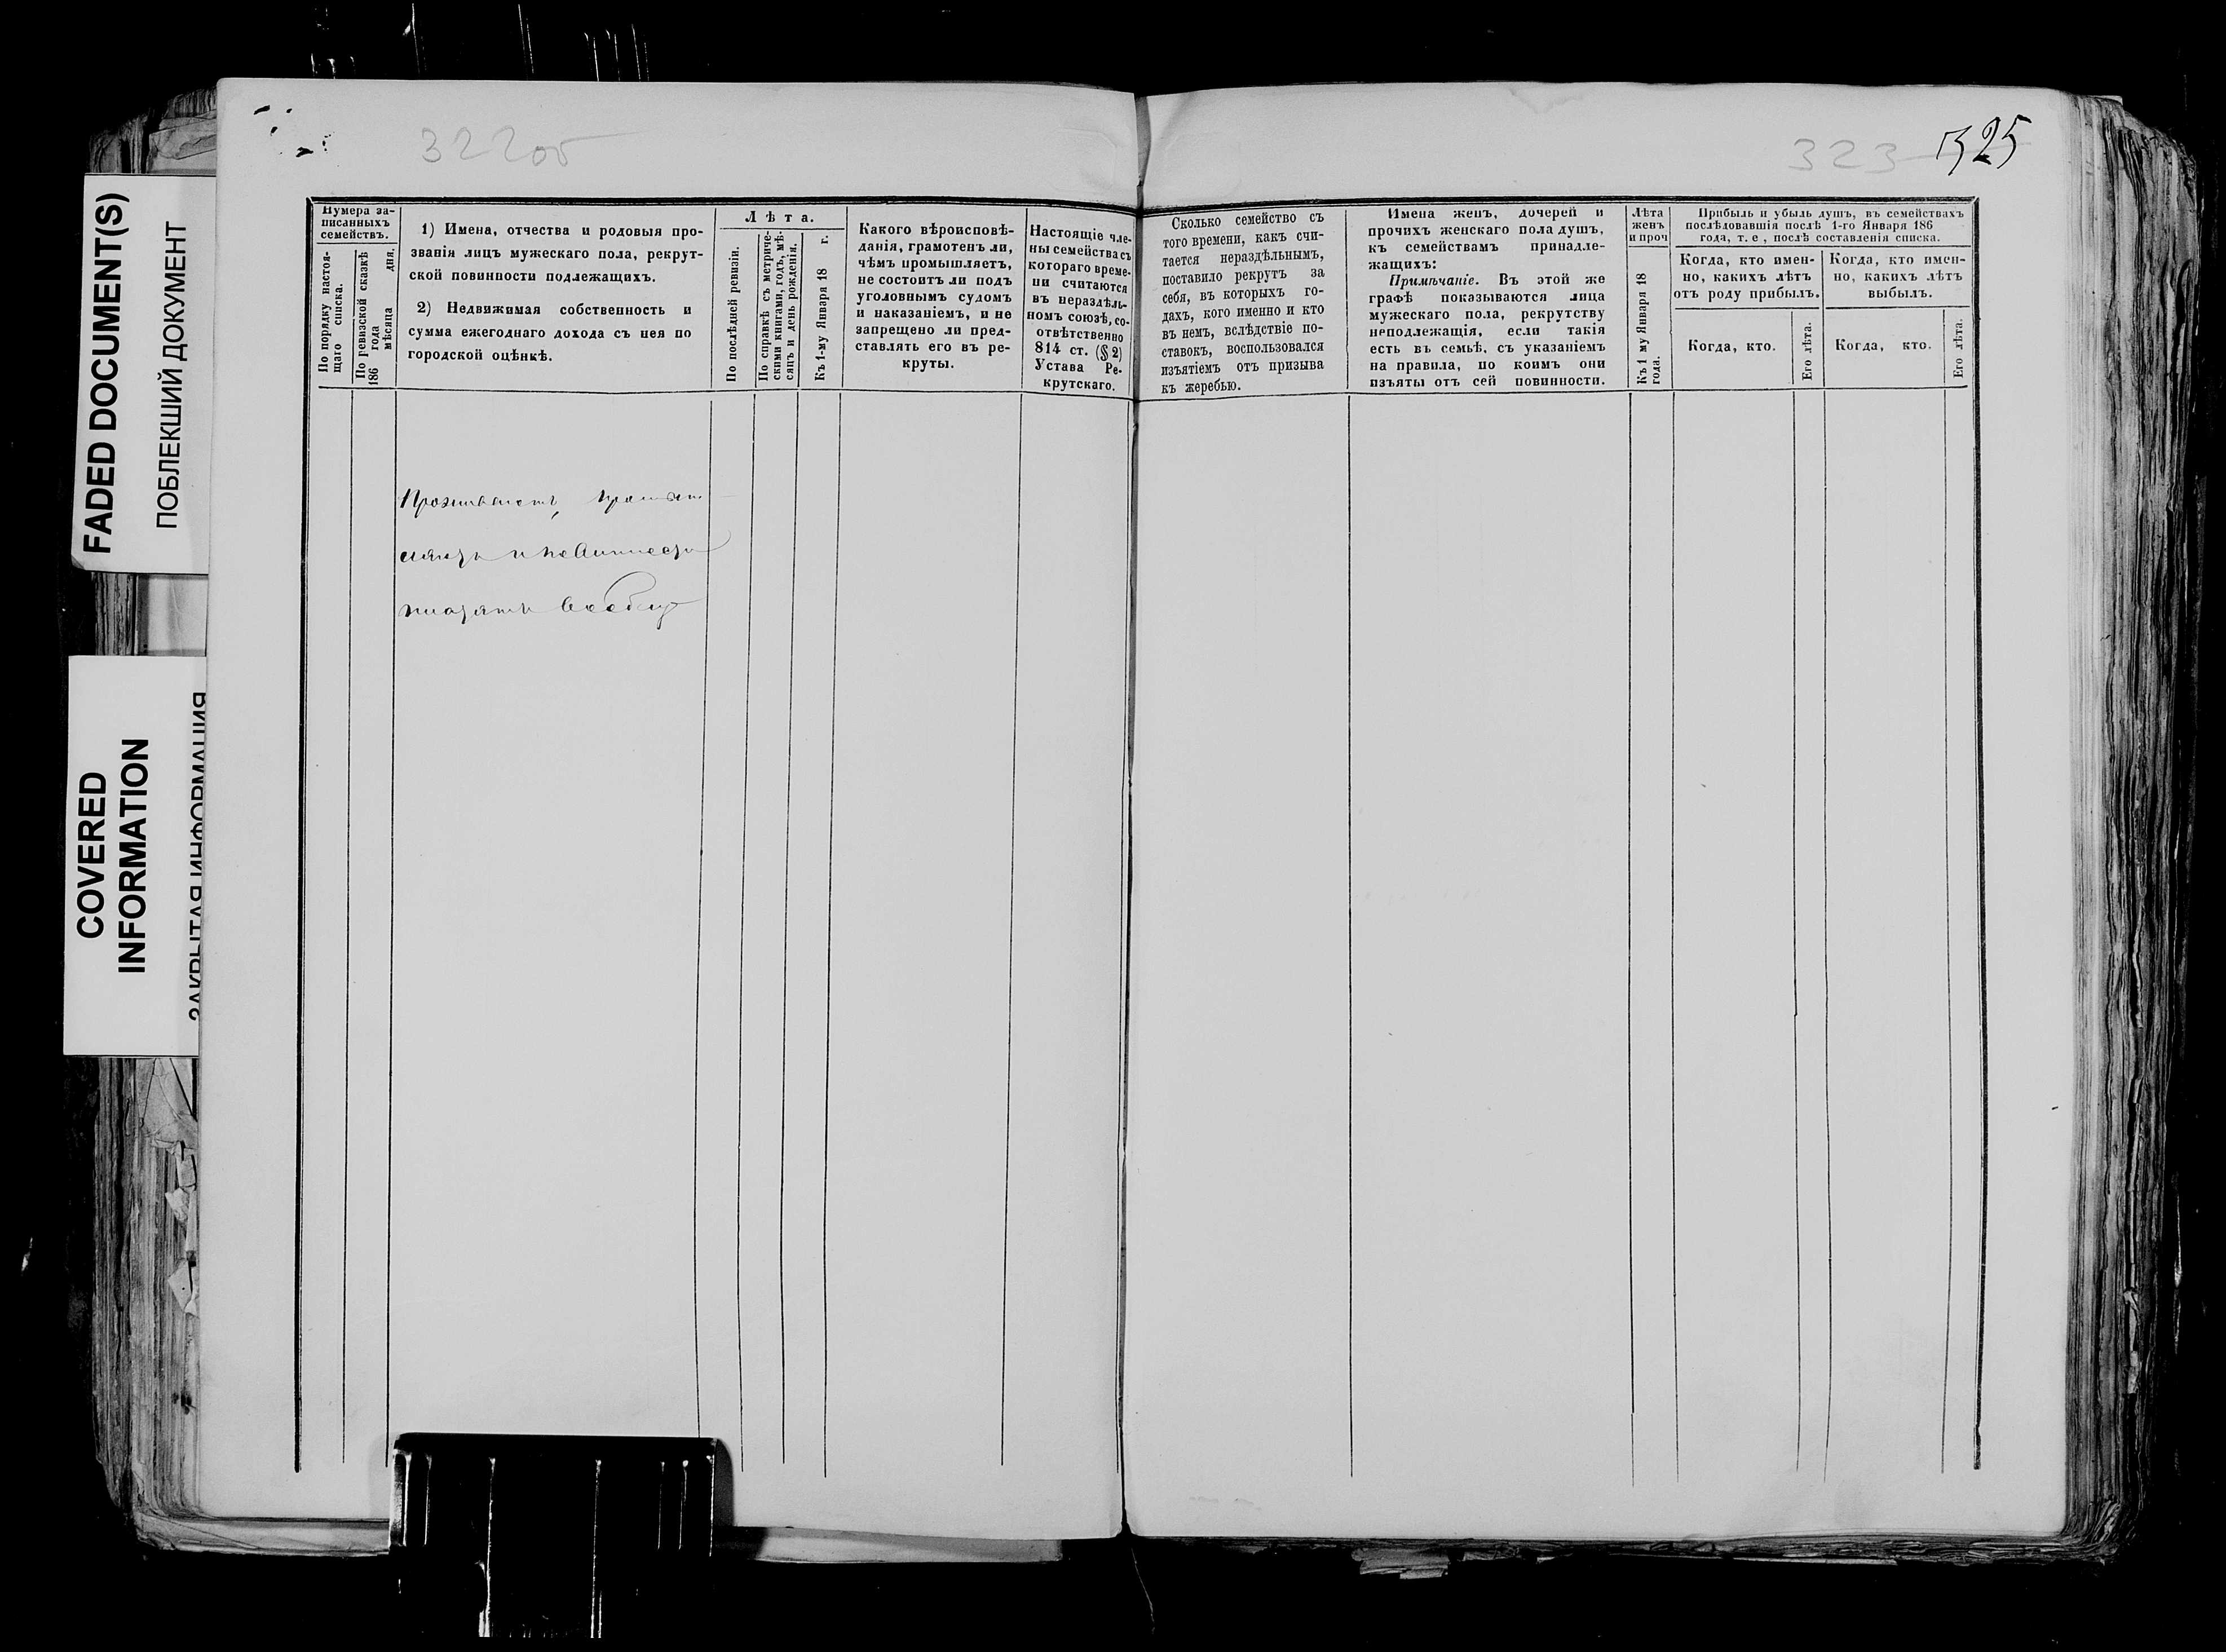 FADED DOCUMENT(S)
ПОБЛЕКШИЙ ДОКУМЕНТ
COVERED
INFORMATION
ЗАКРЫТАЯ ИНФОРМАЦИЯ
322об
Нумера за-
писанныхъ
семействъ.
По порядку настоя-
щаго списка.
По ревизской сказкѣ
186 года
мѣсяца дня.
1) Имена, отчества и родовыя про-
званія лицъ мужескаго пола, рекрут-
ской повинности подлежащихъ.
2) Недвижимая собственность и
сумма ежегоднаго дохода съ нея по
городской оцѣнкѣ.
Лѣта.
По послѣдней ревизіи.
По справкѣ съ метриче-
скими книгами, годъ, мѣ-
сяцъ и день рожденія.
Къ 1-му Января 18 г.
Какого вѣроисповѣ-
данія, грамотенъ ли,
чѣмъ промышляетъ,
не состоитъ ли подъ
уголовнымъ судомъ
и наказаніемъ, и не
запрещено ли пред-
ставлять его въ ре-
круты.
Настоящіе чле-
ны семейства съ
котораго време-
ни считаются
въ нераздѣль-
номъ союзѣ, со-
отвѣтственно
814 ст. (§ 2)
Устава Ре-
крутскаго.
Проживаетъ
323 325
Сколько семейство съ
того времени, какъ счи-
тается нераздѣльнымъ,
поставило рекрутъ за
себя, въ которыхъ го-
дахъ, кого именно и кто
въ немъ, вслѣдствіе по-
ставокъ, воспользовался
изъятіемъ отъ призыва
къ жеребью.
Имена женъ, дочерей и
прочихъ женскаго пола душъ,
къ семействамъ принадле-
жащихъ:
Примѣчаніе. Въ этой же
графѣ показываются лица
мужескаго пола, рекрутству
неподлежащія, если такія
есть въ семьѣ, съ указаніемъ
на правила, по коимъ они
изъяты отъ сей повинности.
Лѣта
женъ
и проч
Къ 1 му Января 18
года.
Прибыль и убыль душъ, въ семействахъ
послѣдовавшія послѣ 1-го Января 186
года, т. е, послѣ составленія списка.
Когда, кто имен-
но, какихъ лѣтъ
отъ роду прибылъ.
Когда, кто.
Его лѣта.
Когда, кто имен-
но, какихъ лѣтъ
выбылъ.
Когда, кто.
Его лѣта.